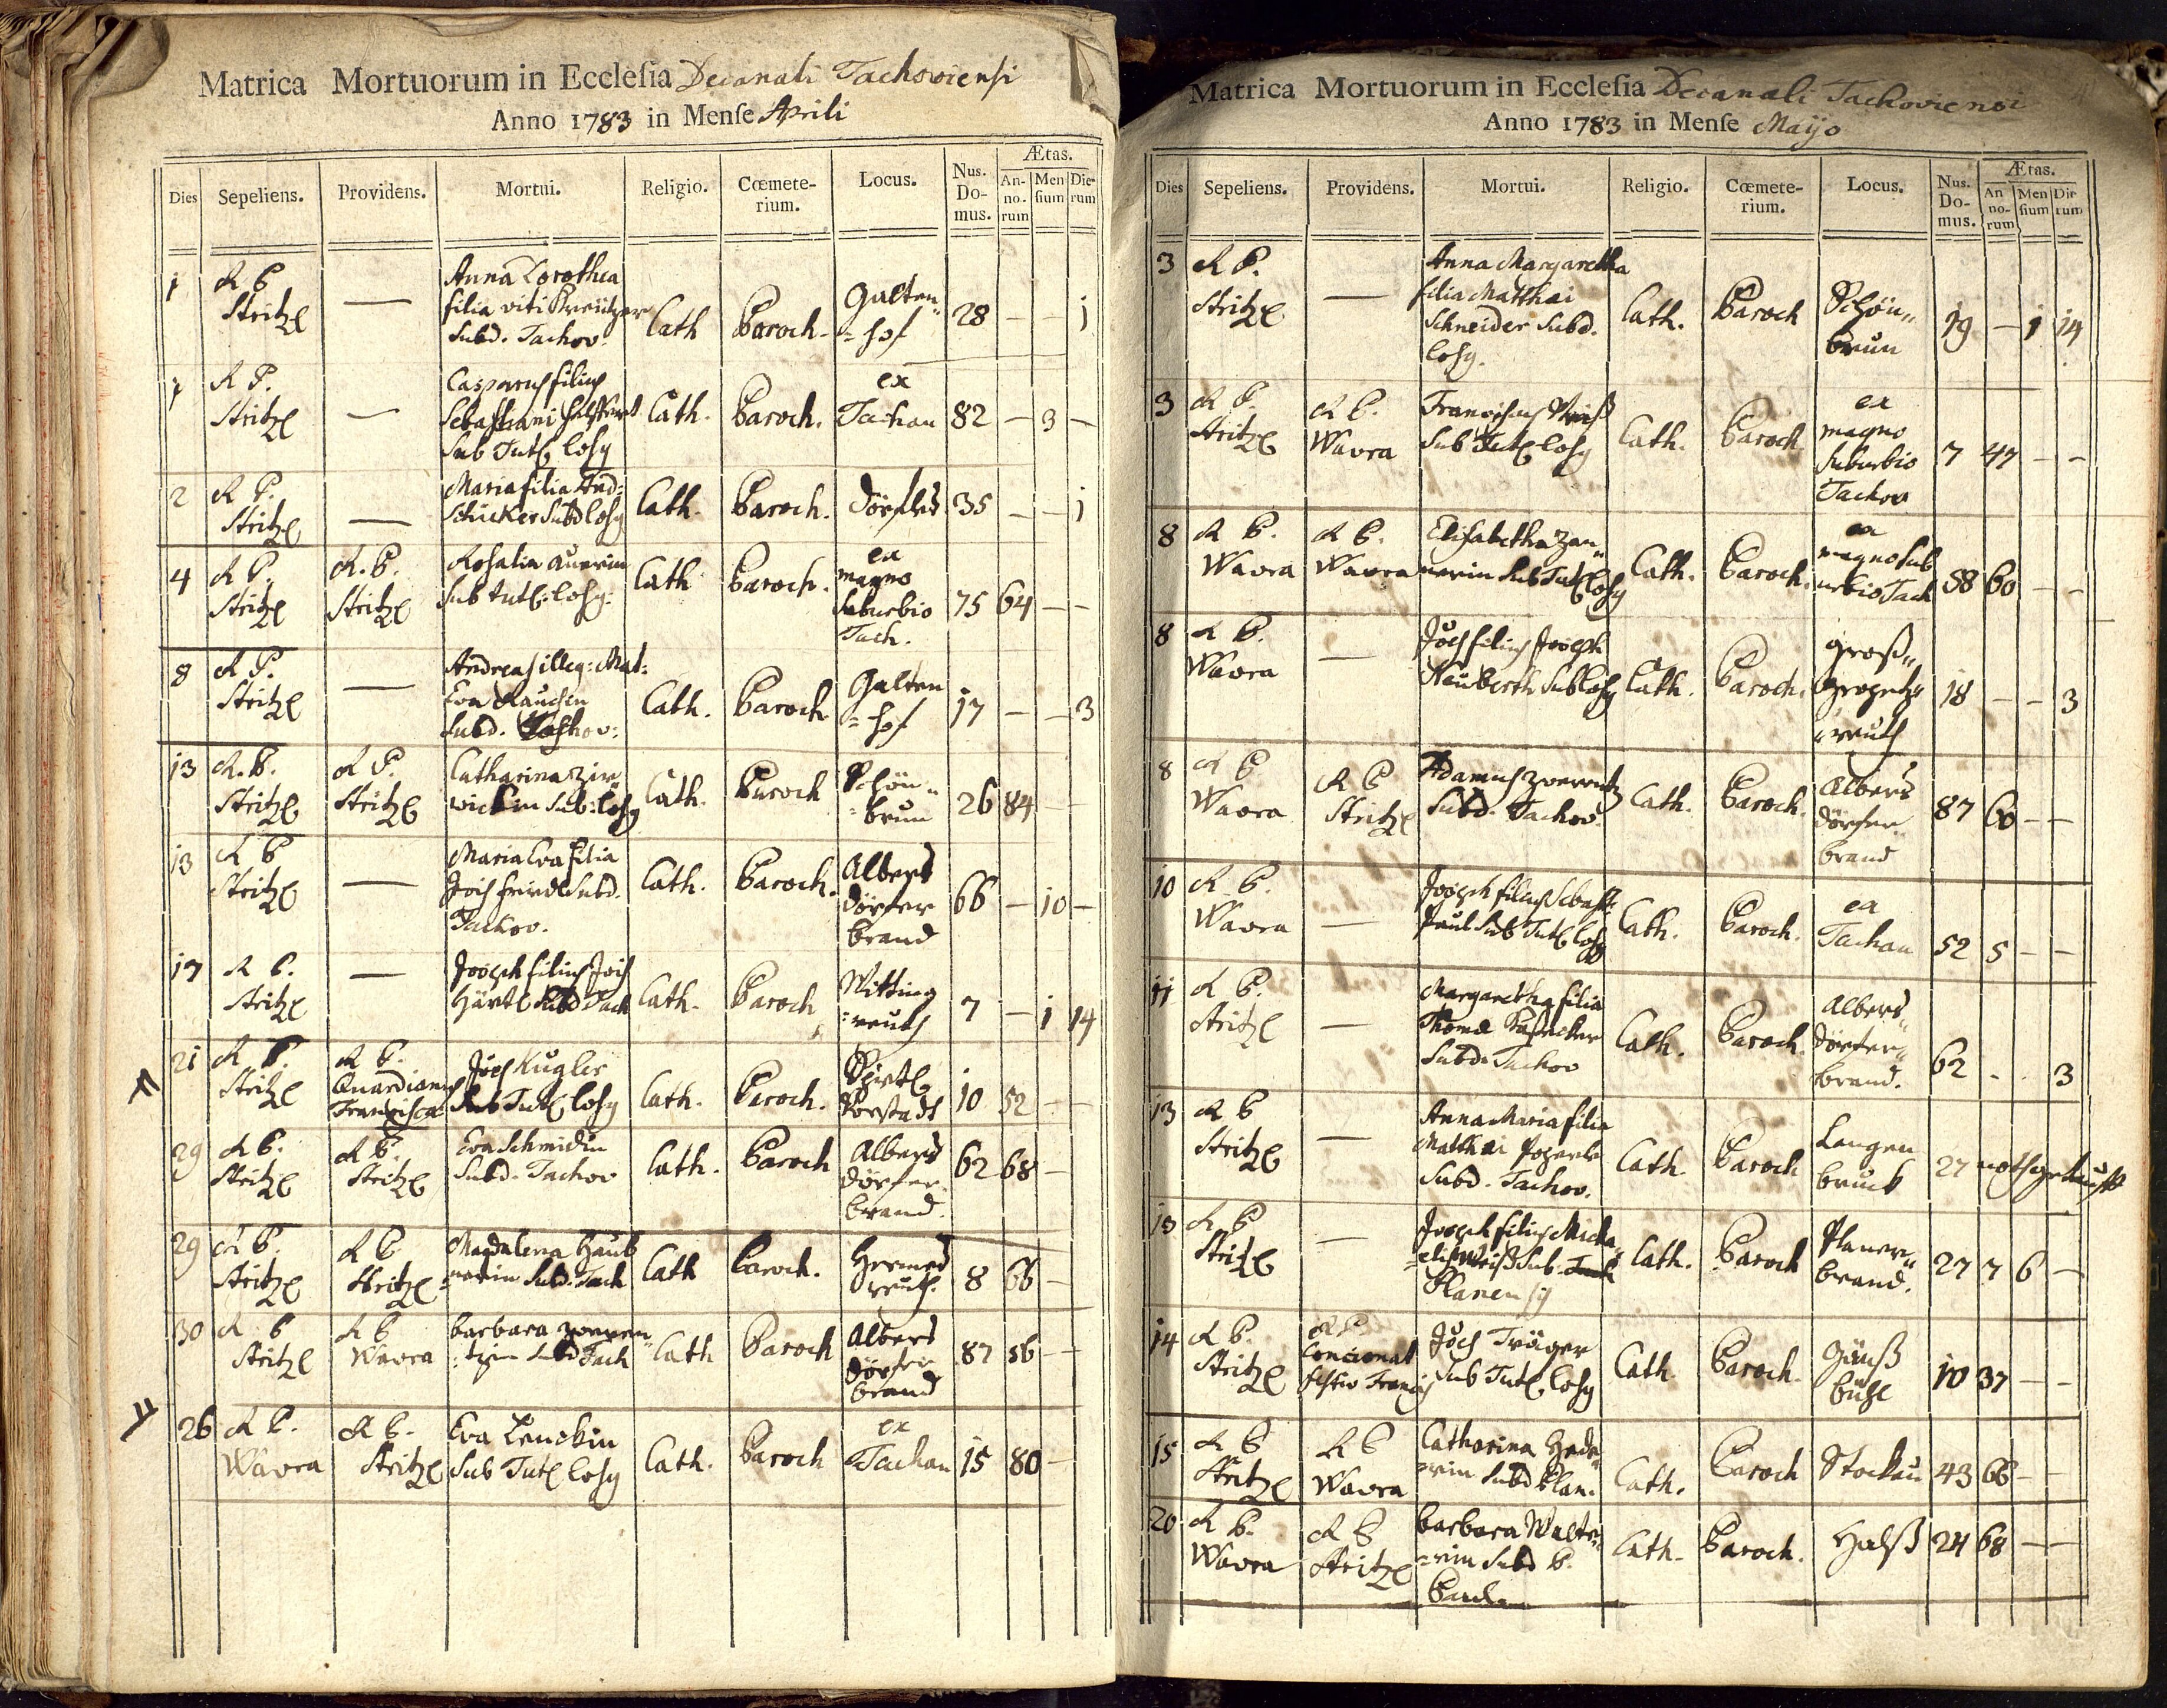 Matrica Mortuorum in Ecclesia Decanali Tachoviensi
Anno 1783 in Mense Aprili
Dies Sepeliens. Providens. Mortui. Religio. Cœmete-rium. Locus. Nus. Do-mus. Ætas. An-no-rum Men sium Die-rum
1 R P Stritzl — Anna Dorothea
filia viti Kreützer
Subd. Tachov. Cath Paroch. Galten = hof 28 — — 1
R P. Stritzl — Casparus filius
Sebastiani
Sub Tutl losy Cath. Paroch. ex Tachau 82 — 3 —
2 R P. Stritzl — Maria filia And:
Schicker Subd losy Cath. Paroch. Dörfles 35 — — 1
4 R P. Stritzl R. P. Stritzl Rosalia Querin
Sub tutl: losy: Cath Paroch. ex magno Suburbio Tach. 75 64 — —
8 R P. Stritzl — Andreas illeg: Mat:
Eva Rauchin
Subd. Tachov: Cath. Paroch Galten = hof 17 — — 3
13 R. P. Stritzl R P. Stritzl Catharina Zir
wickin Sub: losy Cath. Paroch Schön = brun 26 84 —
13 R P Stritzl — Maria Eva filia
Jois Friedl Subd.
Tachov. Cath. Paroch. Albers dörfer brand 66 — 10 —
17 R P. Stritzl — Joseph filius Jois
Härtl Subd Tach Cath. Paroch Witting = reuth 7 — 1 14
21 R P. Stritzl R P. Quardianus Francisca: Joes Kugler
Sub Tutl losy Cath. Paroch. Vorstadt 10 52 — —
29 R P. Stritzl R P. Stritzl Eva Schmidin
Subd. Tachov Cath. Paroch Albers dörfer brand 62 68 —
29 R P. Stritzl R P. Stritzl Magdalena Haub
nerin Subd. Tach Cath Paroch. Hermes reuth. 8 66 —
30 R P Stritzl R P Wavra Barbara Zweren
tzin Subd Tach Cath Paroch Albers dörfer brand 87 56 — —
26 R P. Wavra R P. Stritzl Eva Lenckin
Sub Tutl losy Cath. Paroch ex Tachau 15 80 —
Matrica Mortuorum in Ecclesia Decanali Tachoviensi
Anno 1783 in Mense Mayo
Dies Sepeliens. Providens. Mortui. Religio. Cœmete-rium. Locus. Nus. Do-mus. Ætas. An no-rum Men sium Die-rum
3 R P. Stritzl — Anna Margaretha
filia Matthai
Schneider Subd.
losy. Cath. Paroch Schön" brun 19 — 1 14
3 R P. Stritzl R P. Wavra Franciscus
Sub Tutl losy Cath. Paroch ex magno Suburbio Tachov 7 47 — —
8 R P. Wavra R P. Wavra Elisabetha Zan"
nerin Sub Tutl losy Cath. Paroch. ex magno Sub urbio Tach 58 60 — —
8 R P. Wavra — Joes filius Joseph
Neuberth Sub losy Cath. Paroch. Groß" reuth 18 — — 3
8 R P Wavra R P Stritzl Adamus Zwerentz
Subd. Tachov. Cath. Paroch. Albers dörfer brand 87 60 — —
10 R P. Wavra — Joseph filius Sebast:
Paul Sub Tutl losy Cath. Paroch. ex Tachau 52 5 — —
11 R P. Stritzl — Margaretha filia
Thomæ
Subd. Tachov Cath. Paroch Albers" dörfer" brand. 62 . . 3
13 R P Stritzl — Anna Maria filia
Matthai
Subd. Tachov. Cath. Paroch Langen bruck 27 nothgetaufft
13 R P Stritzl — Joseph filius Micha
elis Weiß Sub. Tach
Planensy Cath. Paroch Planer" brand. 27 7 6 —
14 R P. Stritzl R P. Concionat festiv Francis Joes Träger
Sub Tutl losy Cath Paroch. Gänß bühl 10 37 — —
15 R P Stritzl R P Wavra Catharina
rin Subd Plan. Cath. Paroch Stockau 43 66 — —
20 R P. Wavra R P Stritzl Barbara Walte"
=rin Subd P.
Cath. Paroch. Halß 24 68 — —